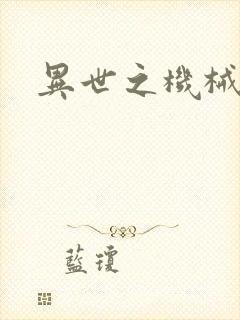 異世之機械
藍瓊